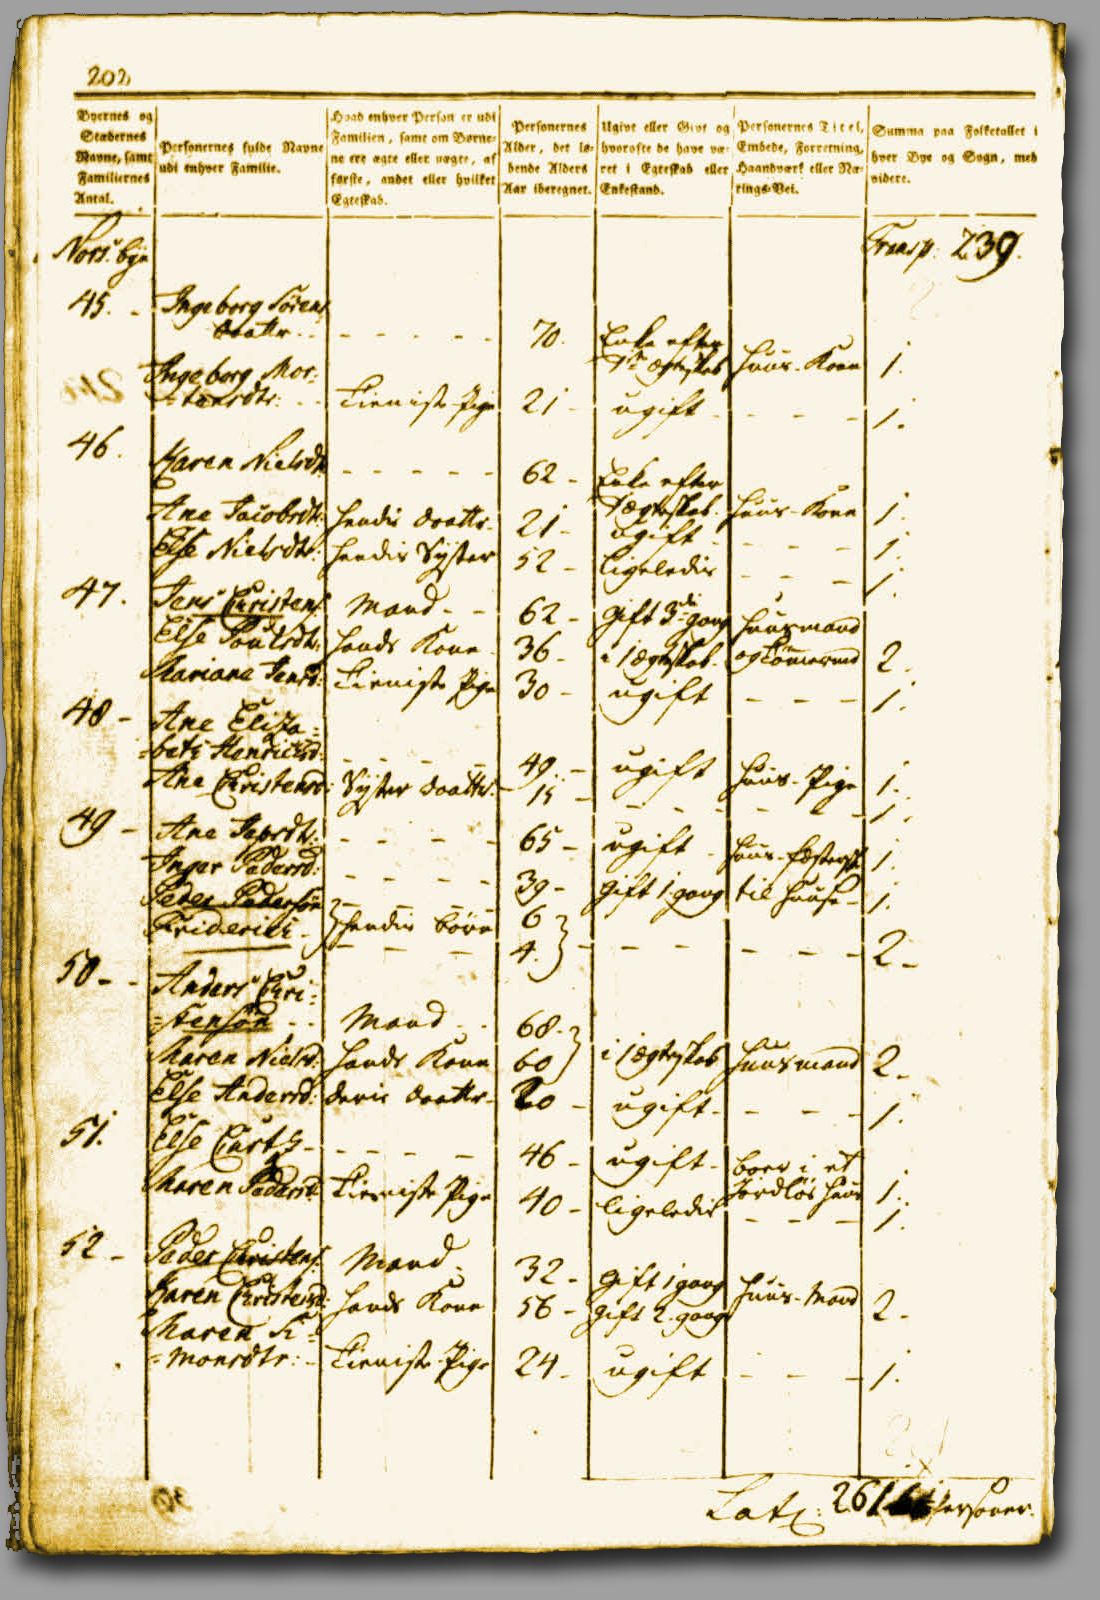 202
Byernes og Stædernes Navne, samt Familiernes Antal.
Personernes fulde Navne udi enhver Familie.
Hvad enhver Person er udi Familien, samt om Børnene ere ægte eller uægte, af første, andet eller hvilket Egteskab.
Personernes Alder, det løbende Alders Aar iberegnet.
Ugivt eller Givt og hvorofte de have været i Egteskab eller Enkestand.
Personernes Titel, Embede, Forretning, Haandværk eller Nærings-Vei.
Summa paa Folketallet i hver Bye og Sogn, med videre.
Nors: bye Transp: 239.
45. Ingeborg Sørens
daattr 70. Enke efter
1te ægteskab Huus-Kone 1.
Ingeborg Mor:
=tensdtr: Tieniste Pige 21 ugift 1.
46. Karen Nielsdtr 62 Enke efter
1 ægteskab. Huus-Kone 1.
Ane Jacobsdtr: Hendis daattr 21 ugift 1.
Else Nielsdtr: Hendis Syster 52 ligeledis 1.
47. Jens Christens: Mand 62 gift 3die gang Huusmand
Else Poulsdtr: Hands Kone 36 i 1 ægteskab og Tømermd 2.
Mariane Jensd: Tieniste Pige 30 ugift 1.
48 Ane Eliza=
=beth Henrichsd: 49. ugift Huus-Pige 1.
Ane Christensd: Syster daattr. 15 1.
49 Ane Jepsdtr: 65 ugift Huus-fæsterske 1.
Inger Pedersd: 39 gift 1 gang til Huuse 1.
Peder Pedersøn 6
Friderich } Hendis børn 4. } 2
50 Anders Chri=
=stensøn Mand 68.
Maren Nielsd: Hands Kone 60 } i 1 ægteskab Huusmand 2.
Else Andersd: deris daattr 20 ugift 1.
51. Else Curts 46 ugift boer i et
Jordløs Huus 1.
Maren Pedersd: Tieniste Pige 40 ligeledis 1.
52 Peder Christens: Mand 32 gift 1 gang
Karen Christensd: Hands Kone 56 gift 2 gang Huus-Mand 2.
Maren Si=
=monsdtr: Tieniste Pige 24 ugift 1.
Lat: 261 Personer.